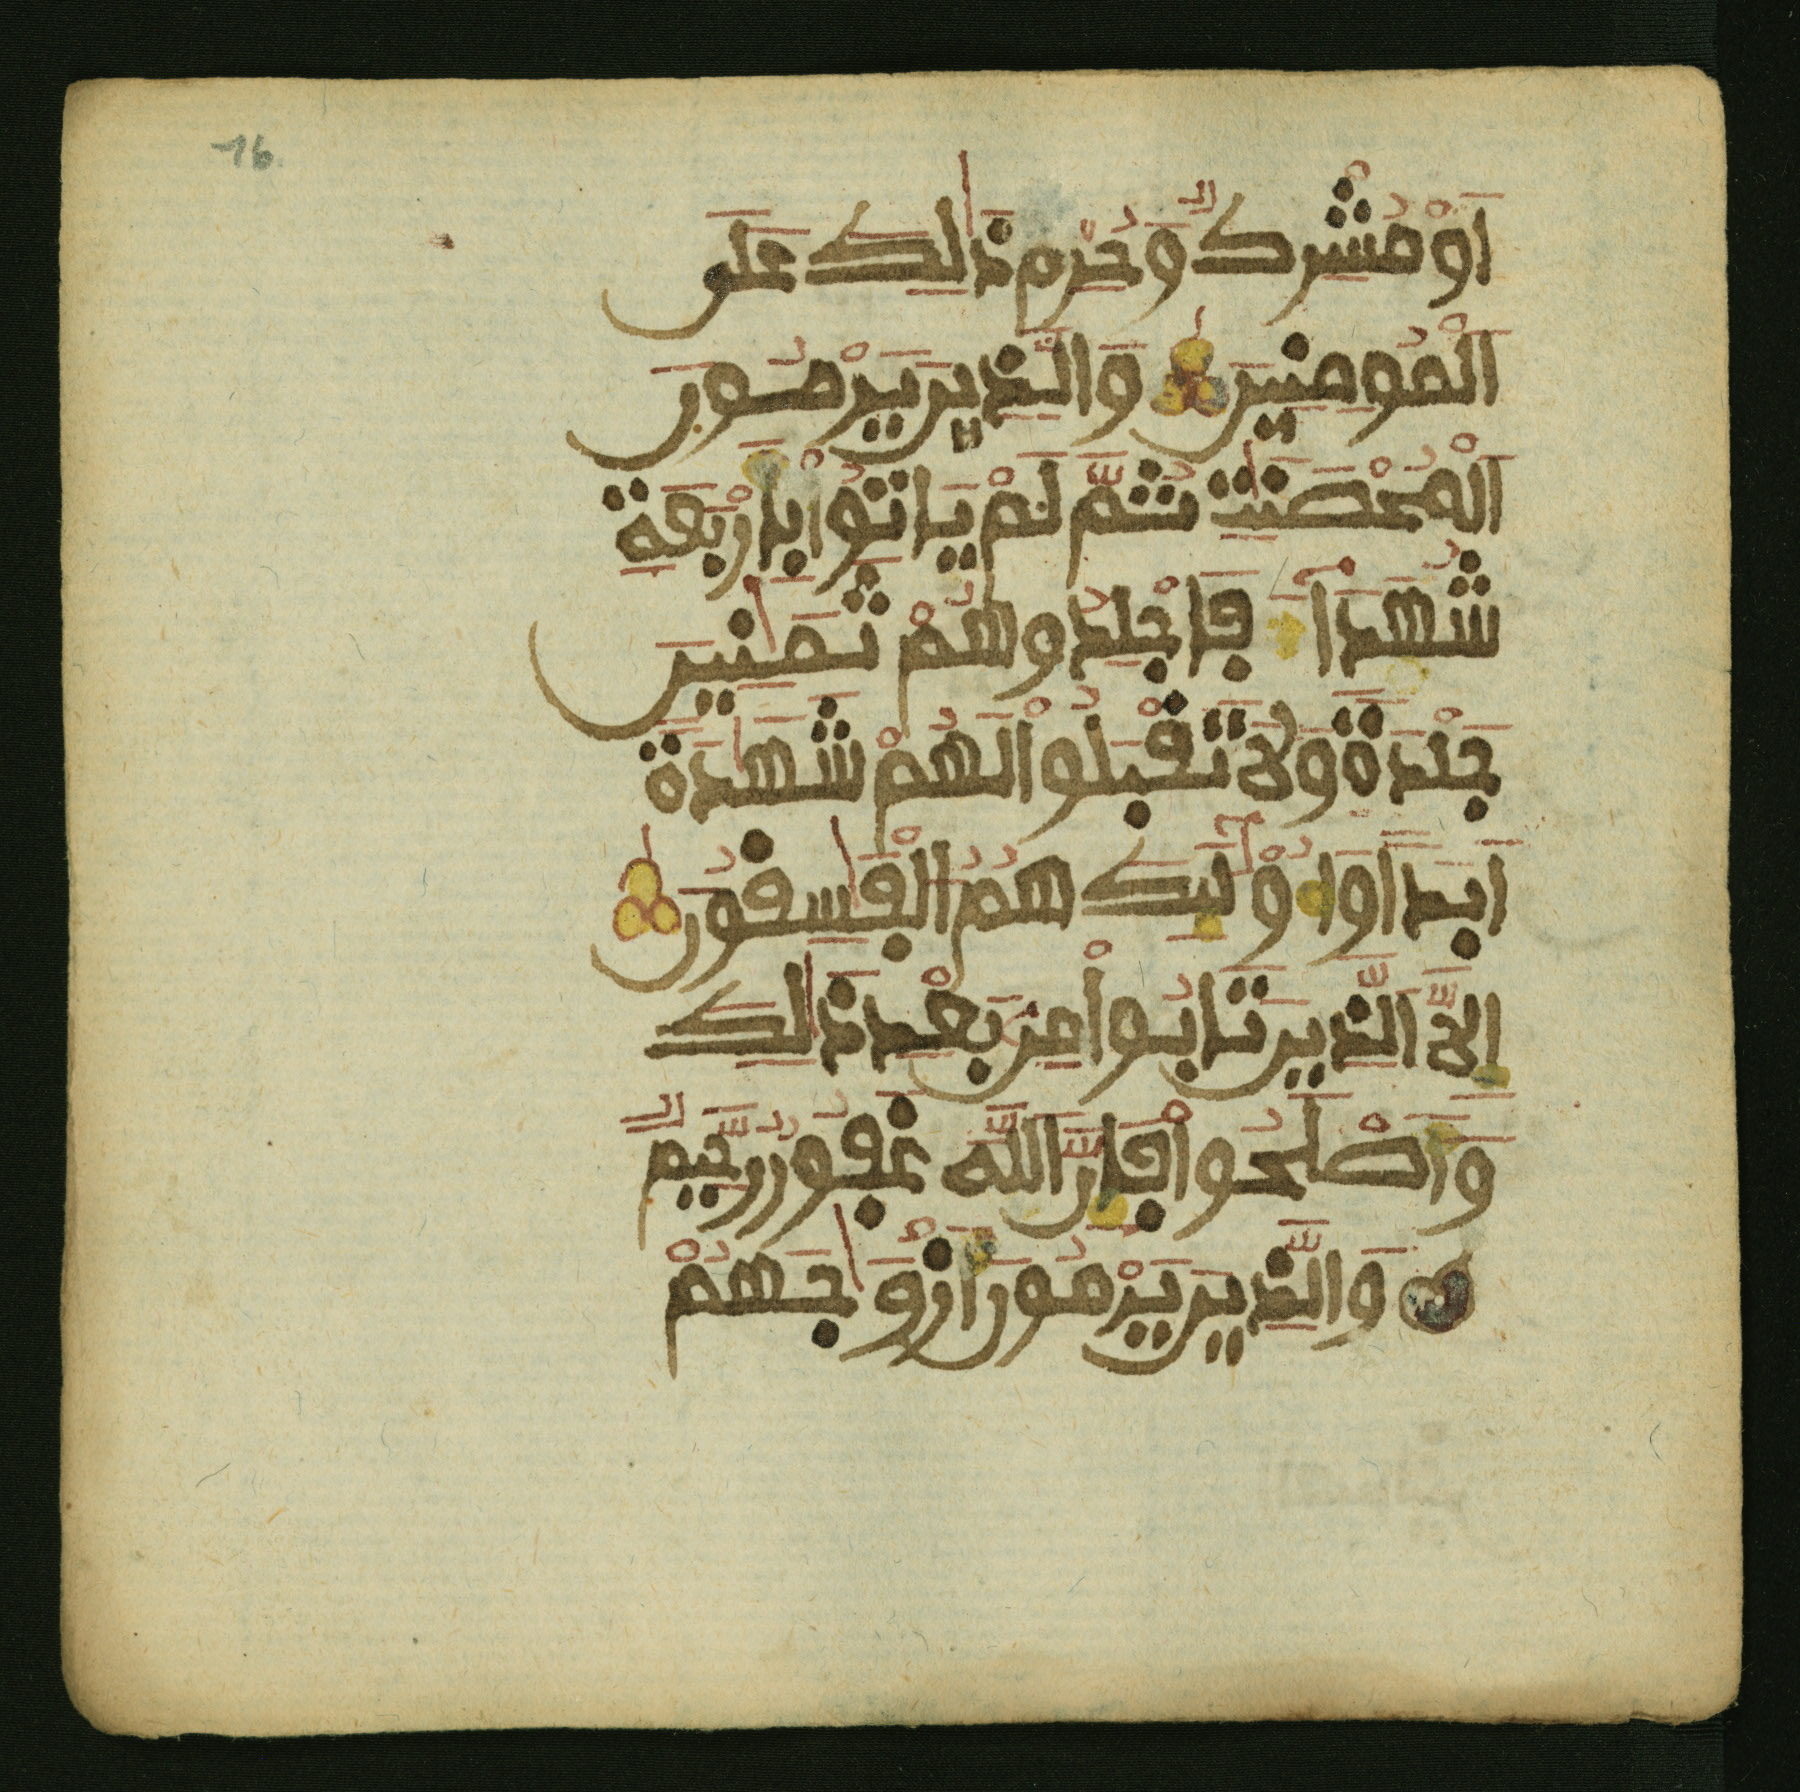 16
اَوْ مُشْرِكٌ وَحُرِّمَ ذَٰلِكَ عَلَى
اَلْمُومِنِينَ وَالَّذِينَ يَرْمُونَ
اَلْمُحْصَنَٰتِ ثُمَّ لَمْ يَاتُواْ بِأَرْبَعَةِ
شُهَدَآءَ فَاجْلِدُوهُمْ ثَمَٰنِينَ
جَلْدَةً وَلَا تَقْبَلُواْ لَهُمْ شَهَٰدَةً
اَبَداً وَأُوْلَٰٓئِكَ هُمُ الْفَٰسِقُونَ
إِلَّا اَلَّذِينَ تَابُواْ مِنۢ بَعْدِ ذَٰلِكَ
وَأَصْلَحُواْ فَإِنَّ اَللَّهَ غَفُورٌ رَّحِيمٌ
وَالَّذِينَ يَرْمُونَ أَزْوَٰجَهُمْ